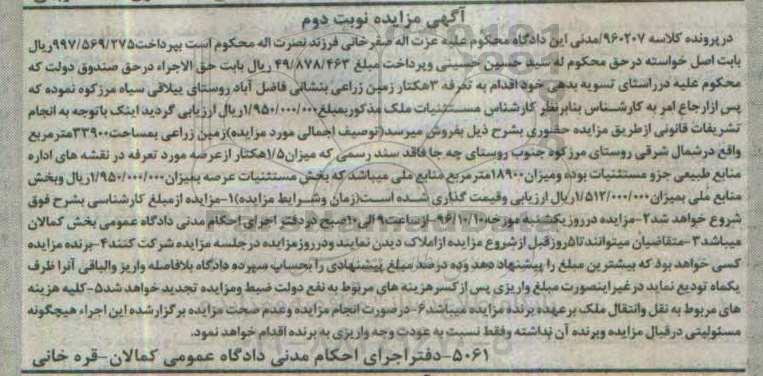 آگهی مزایده نوبت دوم
در پرونده کلاسه ۹۶۰۲۰۷/مدنی این دادگاه محکوم علیه عزت اله صفرخانی فرزند نصرت اله محکوم است بپرداخت ۹۹۷/۵۶۹/۲۷۵ریال
بابت اصل خواسته در حق محکوم له سید حسین حسینی وپرداخت مبلغ ۴۹/۸۷۸/۴۶۳ ریال بابت حق الاجراء در حق صندوق دولت که
محکوم علیه در راستای تسویه بدهی خود اقدام به تعرفه ۳هکتار زمین زراعی بنشانی فاضل آباد روستای ییلاقی سیاه مرزکوه نموده که
پس از ارجاع امر به کارشناس بنابرنظر کارشناس مستثنیات ملک مذکور بمبلغ ۱/۹۵۰/۰۰۰/۰۰۰ریال ارزیابی گردید اینک باتوجه به انجام
تشریفات قانونی از طریق مزایده حضوری بشرح ذیل بفروش میرسد(توصیف اجمالی مورد مزایده)زمین زراعی بمساحت۳۳۹۰۰مترمربع
واقع در شمال شرقی روستای مرزکوه جنوب روستای چه جا فاقد سند رسمی که میزان۱/۵هکتار از عرصه مورد تعرفه در نقشه های اداره
منابع طبیعی جزو مستثنیات بوده ومیزان۱۸۹۰۰مترمربع منابع ملی میباشد که بخش مستثنیات عرصه بمیزان۱/۹۵۰/۰۰۰/۰۰۰ریال وبخش
منابع ملی بمیزان۱/۵۱۲/۰۰۰/۰۰۰ریال ارزیابی وقیمت گذاری شده است(زمان وشرایط مزایده)۱-مزایده از مبلغ کارشناسی بشرح فوق
شروع خواهد شد۲-مزایده در روز یکشنبه مورخه ۹۶/۱۰/۱۰-از ساعت۹ الی۱۰صبح در دفتر اجرای احکام مدنی دادگاه عمومی بخش کمالان
میباشد۳-متقاضیان میتوانند تا۵روز قبل از شروع مزایده از املاک دیدن نمایند ودر روز مزایده در جلسه مزایده شرکت کنند۴-برنده مزایده
کسی خواهد بود که بیشترین مبلغ را پیشنهاد دهد وده درصد مبلغ پیشنهادی را بحساب سپرده دادگاه بلافاصله واریز والباقی آنرا ظرف
یکماه تودیع نماید در غیر اینصورت مبلغ واریزی پس از کسر هزینه های مربوط به نفع دولت ضبط ومزایده تجدید خواهد شد۵-کلیه هزینه
های مربوط به نقل وانتقال ملک بر عهده برنده مزایده میباشد۶-در صورت انجام مزایده وعدم صحت مزایده برگزار شده این اجراء هیچگونه
مسئولیتی در قبال مزایده وبرنده آن نداشته وفقط نسبت به عودت وجه واریزی به برنده اقدام خواهد نمود.
۵۰۶۱-دفتر اجرای احکام مدنی دادگاه عمومی کمالان-قره خانی